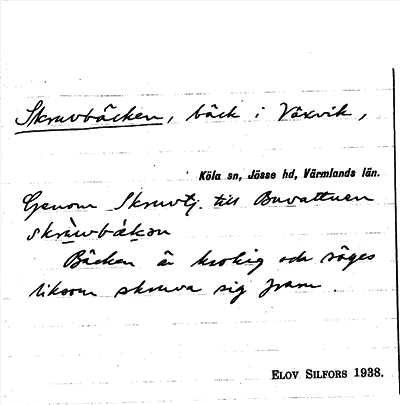 Skruvbäcken, bäck i Växvik,
Köla sn, Jösse hd, Värmlands län.
Genom Skruvtj. till Buvattnen
skrùwbä̀kɔn
Bäcken är krokig och säges
liksom skruva sig fram.
ELOV SILFORS 1938.